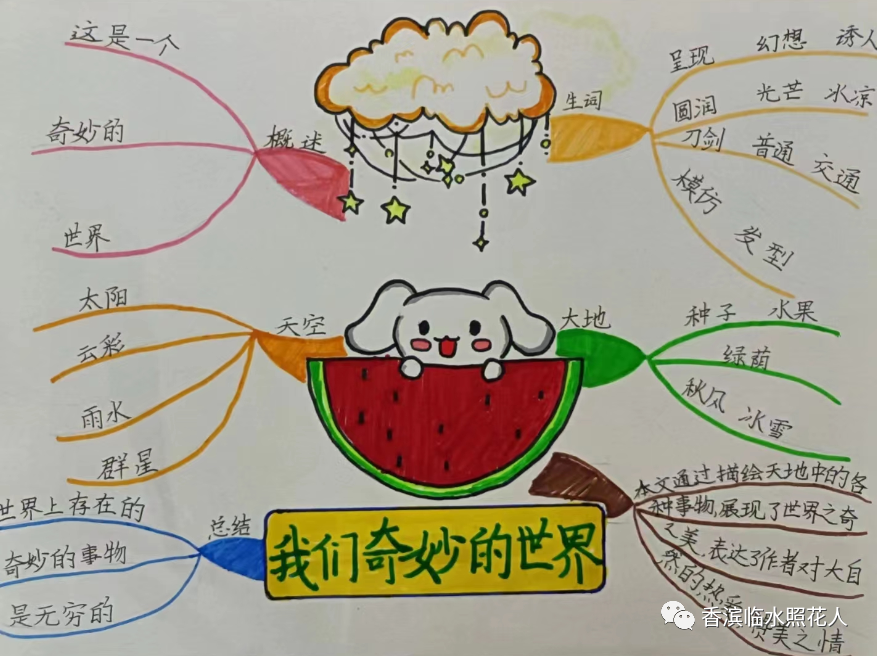 这是一个
奇妙的
世界
概述
生词
呈现 幻想 诱人
圆润 光芒 冰凉
刀剑 普通 交通
模仿 发型
太阳
云彩
雨水
群星
天空
大地
种子 水果
绿荫
秋风 冰雪
世界上存在的
奇妙的事物
是无穷的
总结
我们奇妙的世界
本文通过描绘天地中的各
种事物,展现了世界之奇
之美,表达了作者对大自
然的热爱
赞美之情
香滨临水照花人